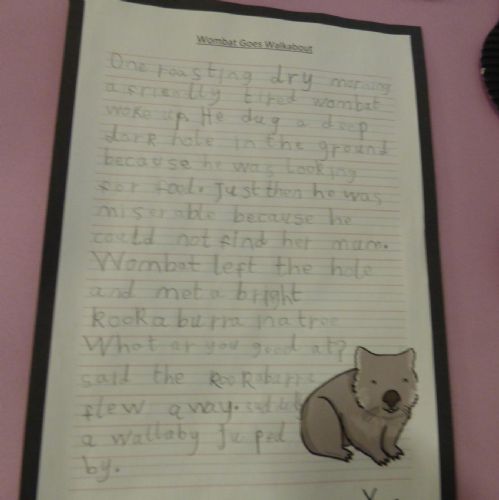 Wombat Goes Walkabout
One roasting dry morning
a friendly tired wombat
woke up. He dug a deep
dark hole in the ground
because he was looking
for food. Just then he was
miserable because he
could not find her mum.
Wombat left the hole
and met a bright
kookaburra in a tree
What ar you good at?
said the kookaburra
flew away.
a wallaby Ju ped
by.